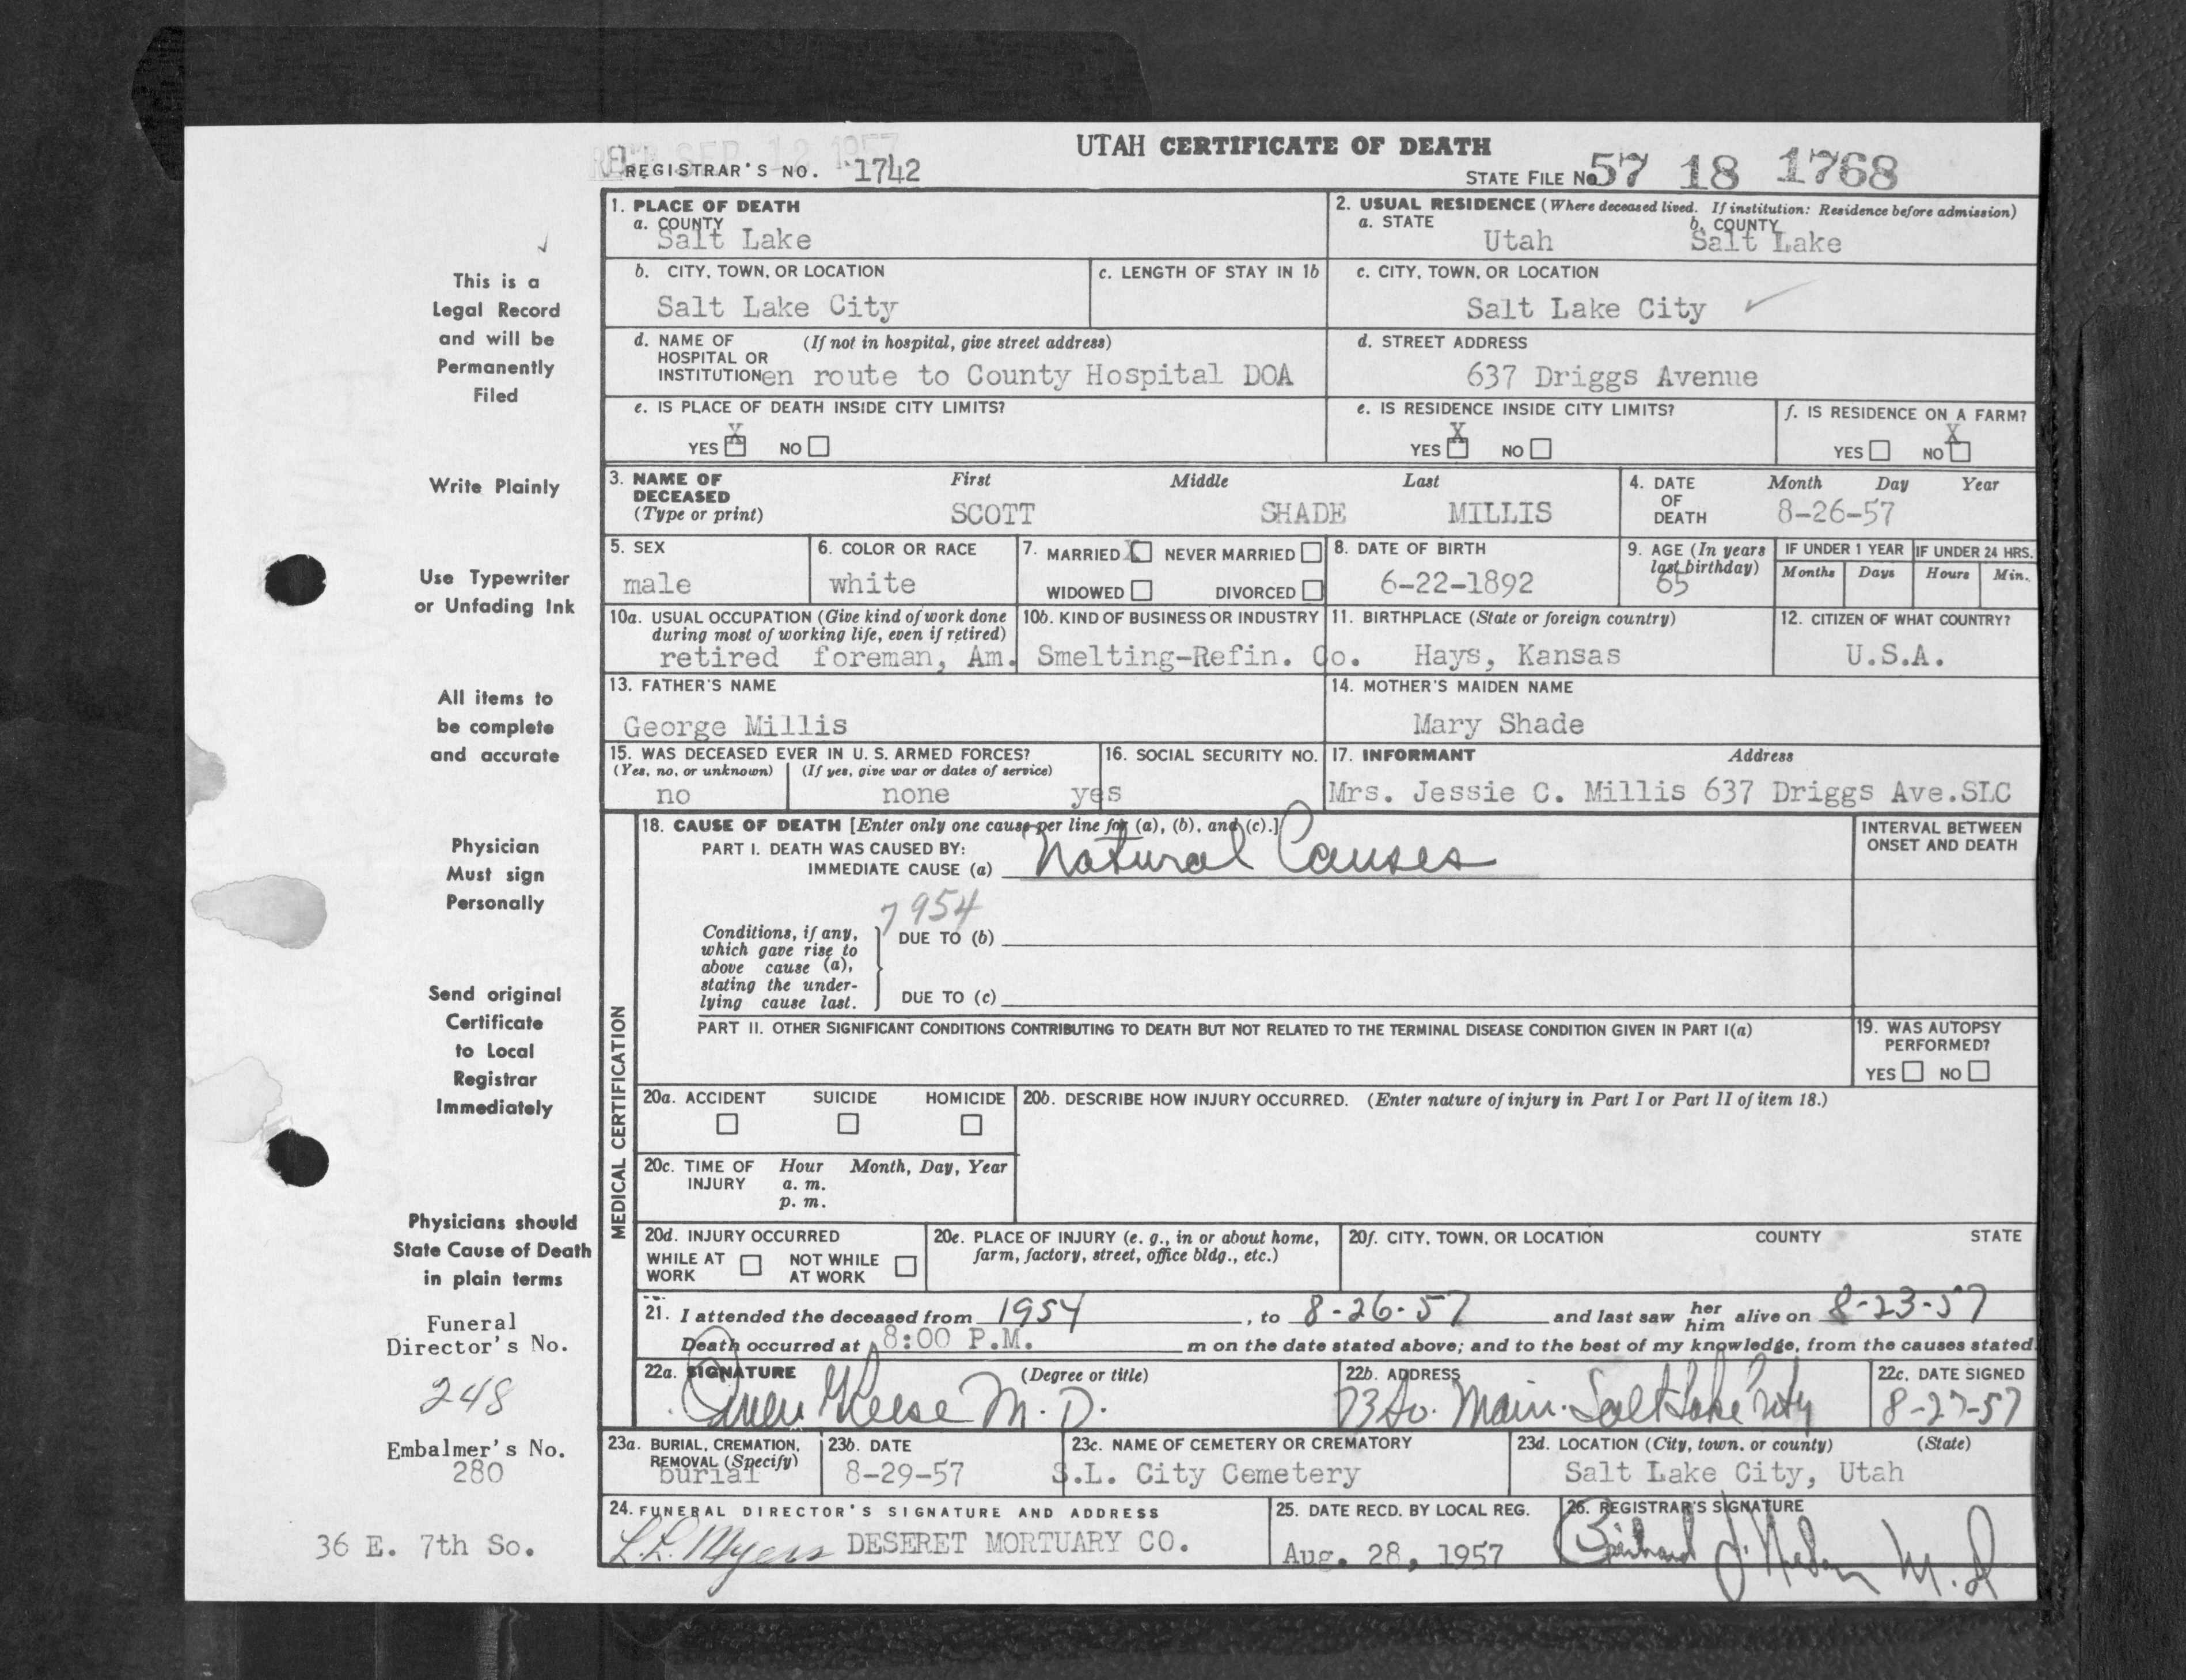 UTAH CERTIFICATE OF DEATH
REC'D SEP 12 1957
REGISTRAR'S NO. 1742
STATE FILE No 57 18 1768
This is a
Legal Record
and will be
Permanently
Filed
Write Plainly
Use Typewriter
or Unfading Ink
All items to
be complete
and accurate
Physician
Must sign
Personally
Send original
Certificate
to Local
Registrar
Immediately
Physicians should
State Cause of Death
in plain terms
Funeral
Director's No.
248
Embalmer's No.
280
36 E. 7th So.
1. PLACE OF DEATH
a. COUNTY
Salt Lake
2. USUAL RESIDENCE (Where deceased lived. If institution: Residence before admission)
a. STATE b. COUNTY
Utah Salt Lake
b. CITY, TOWN, OR LOCATION
Salt Lake City
c. LENGTH OF STAY IN 1b
c. CITY, TOWN, OR LOCATION
Salt Lake City
d. NAME OF (If not in hospital, give street address)
HOSPITAL OR
INSTITUTION en route to County Hospital DOA
d. STREET ADDRESS
637 Driggs Avenue
e. IS PLACE OF DEATH INSIDE CITY LIMITS?
X
YES NO
e. IS RESIDENCE INSIDE CITY LIMITS?
X
YES NO
f. IS RESIDENCE ON A FARM?
X
YES NO
3. NAME OF First Middle Last
DECEASED
(Type or print) SCOTT SHADE MILLIS
4. DATE Month Day Year
OF
DEATH 8-26-57
5. SEX
male
6. COLOR OR RACE
white
7. MARRIED X NEVER MARRIED
WIDOWED DIVORCED
8. DATE OF BIRTH
6-22-1892
9. AGE (In years
last birthday)
65
IF UNDER 1 YEAR IF UNDER 24 HRS.
Months Days Hours Min.
10a. USUAL OCCUPATION (Give kind of work done
during most of working life, even if retired)
10b. KIND OF BUSINESS OR INDUSTRY
retired foreman, Am. Smelting-Refin. Co.
11. BIRTHPLACE (State or foreign country)
Hays, Kansas
12. CITIZEN OF WHAT COUNTRY?
U.S.A.
13. FATHER'S NAME
George Millis
14. MOTHER'S MAIDEN NAME
Mary Shade
15. WAS DECEASED EVER IN U. S. ARMED FORCES?
(Yes, no, or unknown) (If yes, give war or dates of service)
no none
16. SOCIAL SECURITY NO.
yes
17. INFORMANT Address
Mrs. Jessie C. Millis 637 Driggs Ave.SLC
MEDICAL CERTIFICATION
18. CAUSE OF DEATH [Enter only one cause per line for (a), (b), and (c).]
PART I. DEATH WAS CAUSED BY:
IMMEDIATE CAUSE (a) Natural Causes
INTERVAL BETWEEN
ONSET AND DEATH
7954
Conditions, if any,
which gave rise to
above cause (a),
stating the under-
lying cause last.
DUE TO (b)
DUE TO (c)
PART II. OTHER SIGNIFICANT CONDITIONS CONTRIBUTING TO DEATH BUT NOT RELATED TO THE TERMINAL DISEASE CONDITION GIVEN IN PART I(a)
19. WAS AUTOPSY
PERFORMED?
YES NO
20a. ACCIDENT SUICIDE HOMICIDE
20b. DESCRIBE HOW INJURY OCCURRED. (Enter nature of injury in Part I or Part II of item 18.)
20c. TIME OF Hour Month, Day, Year
INJURY a. m.
p. m.
20d. INJURY OCCURRED
WHILE AT NOT WHILE
WORK AT WORK
20e. PLACE OF INJURY (e. g., in or about home,
farm, factory, street, office bldg., etc.)
20f. CITY, TOWN, OR LOCATION COUNTY STATE
21. I attended the deceased from 1954, to 8-26-57 and last saw her him alive on 8-23-57
Death occurred at 8:00 P.M. m on the date stated above; and to the best of my knowledge, from the causes stated.
22a. SIGNATURE (Degree or title)
Owen Reese M. D.
22b. ADDRESS
73 So. Main. Salt Lake City
22c. DATE SIGNED
8-27-57
23a. BURIAL, CREMATION,
REMOVAL (Specify)
burial
23b. DATE
8-29-57
23c. NAME OF CEMETERY OR CREMATORY
S.L. City Cemetery
23d. LOCATION (City, town, or county) (State)
Salt Lake City, Utah
24. FUNERAL DIRECTOR'S SIGNATURE AND ADDRESS
L.L. Myers DESERET MORTUARY CO.
25. DATE RECD. BY LOCAL REG.
Aug. 28, 1957
26. REGISTRAR'S SIGNATURE
M.D